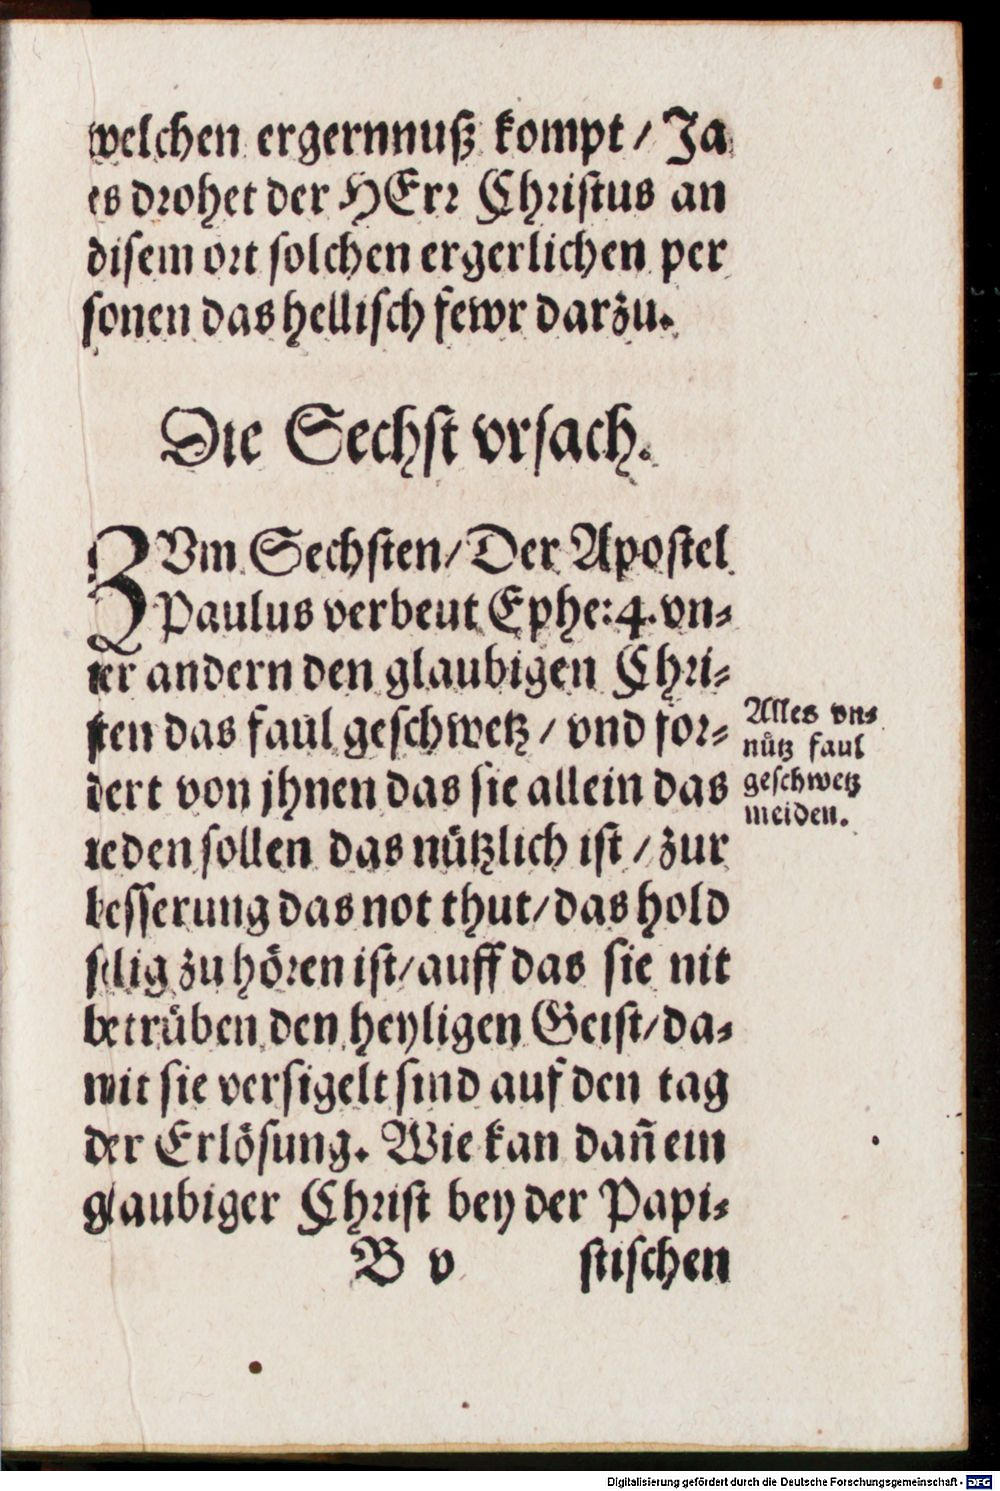 welchen ergernnuß kompt / Ja
es drohet der HErr Christus an
disem ort solchen ergerlichen per
sonen das hellisch fewr darzu.
Die Sechst vrsach.
ZVm Sechsten / Der Apostel
Paulus verbeut Ephe: 4. vn-
ter andern den glaubigen Chri-
sten das faul geschwetz / vnd for-
dert von jhnen das sie allein das
reden sollen das nützlich ist / zur
besserung das not thut / das hold
selig zu hören ist / auff das sie nit
betrüben den heyligen Geist / da-
mit sie versigelt sind auf den tag
der Erlösung. Wie kan dañ ein
glaubiger Christ bey der Papi-
B v stischen
Alles vn-
nütz faul
geschwetz
meiden.
Digitalisierung gefördert durch die Deutsche Forschungsgemeinschaft - DFG